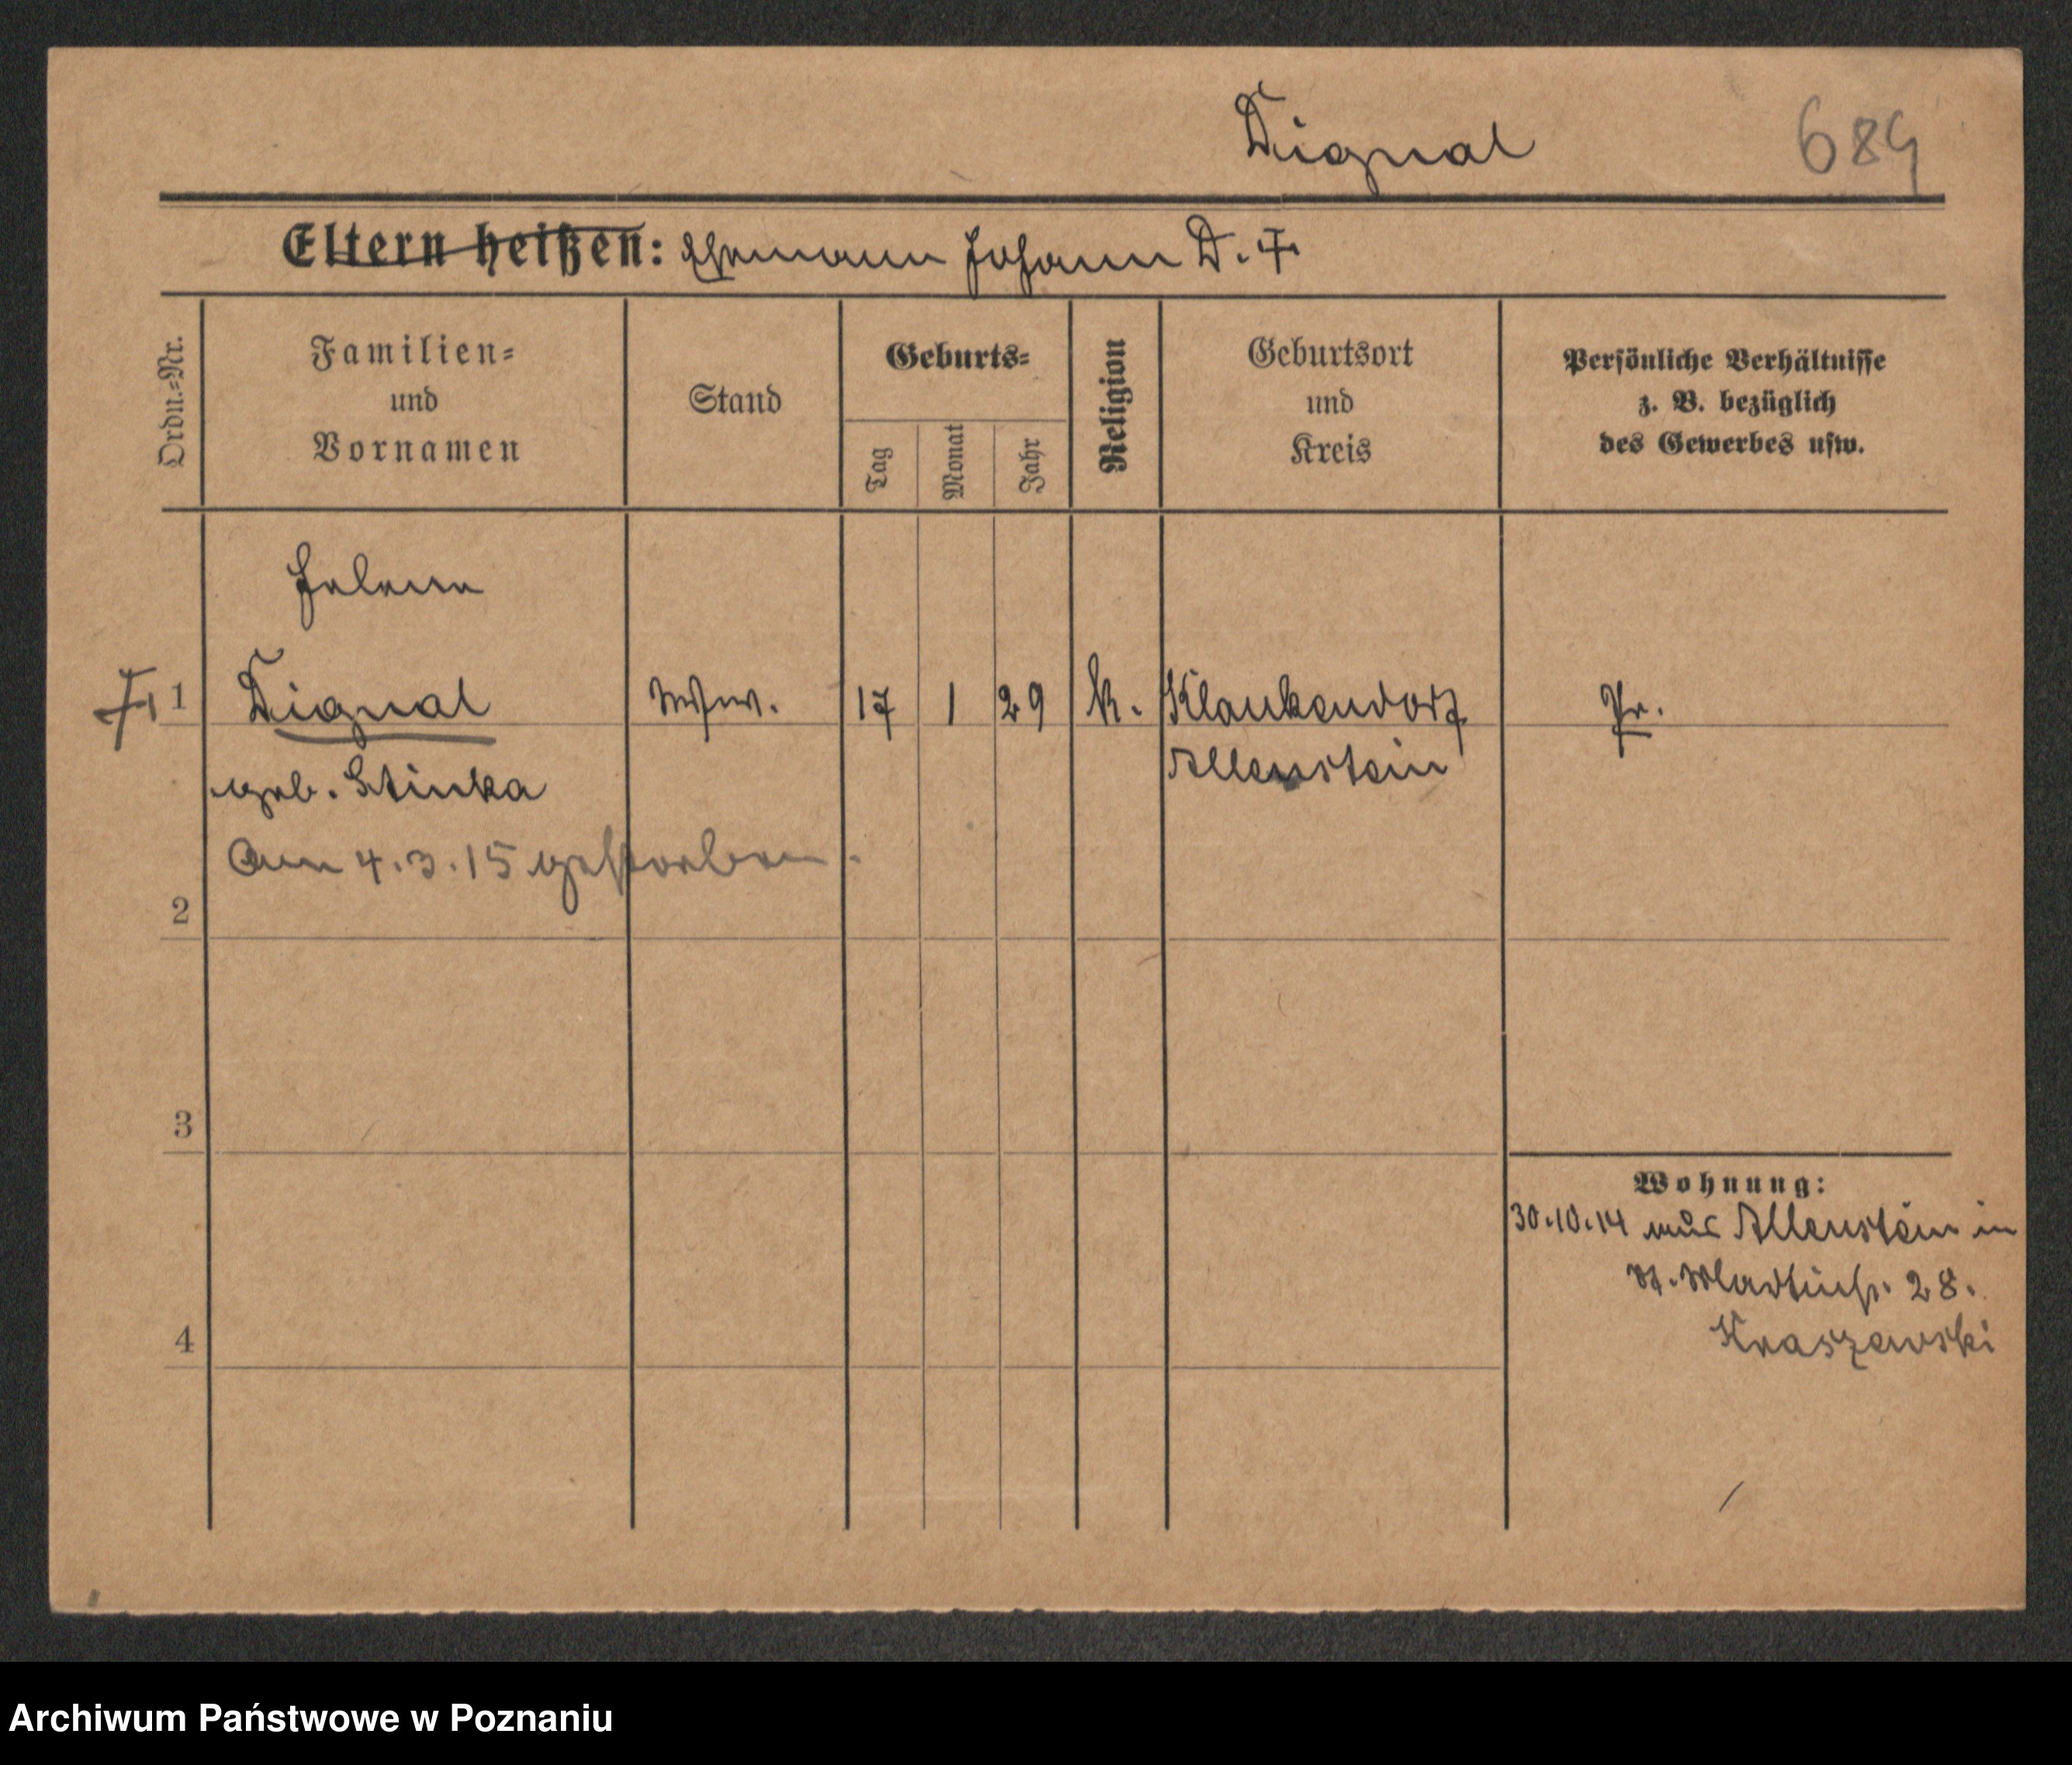 Dignal 689
Eltern heißen: Ehemann Johann D. †
Ordn.-Nr.
Familien-
und
Vornamen
Stand
Geburts-
Tag
Monat
Jahr
Religion
Geburtsort
und
Kreis
Persönliche Verhältnisse
z. B. bezüglich
des Gewerbes usw.
Helene
† 1 Dignal Wwe. 17 1 29 k. Klaukendorf Pr.
geb. Stinka Allenstein
Am 4.3.15 gestorben.
2
3
4
Wohnung:
30.10.14 aus Allenstein in
28.
Kraszewski
Archiwum Państwowe w Poznaniu